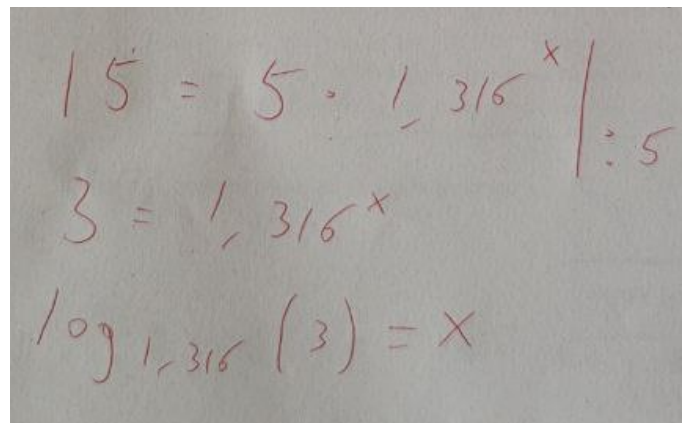 15 = 5 · 1,316^x | : 5
3 = 1,316^x
log_1,316 (3) = x